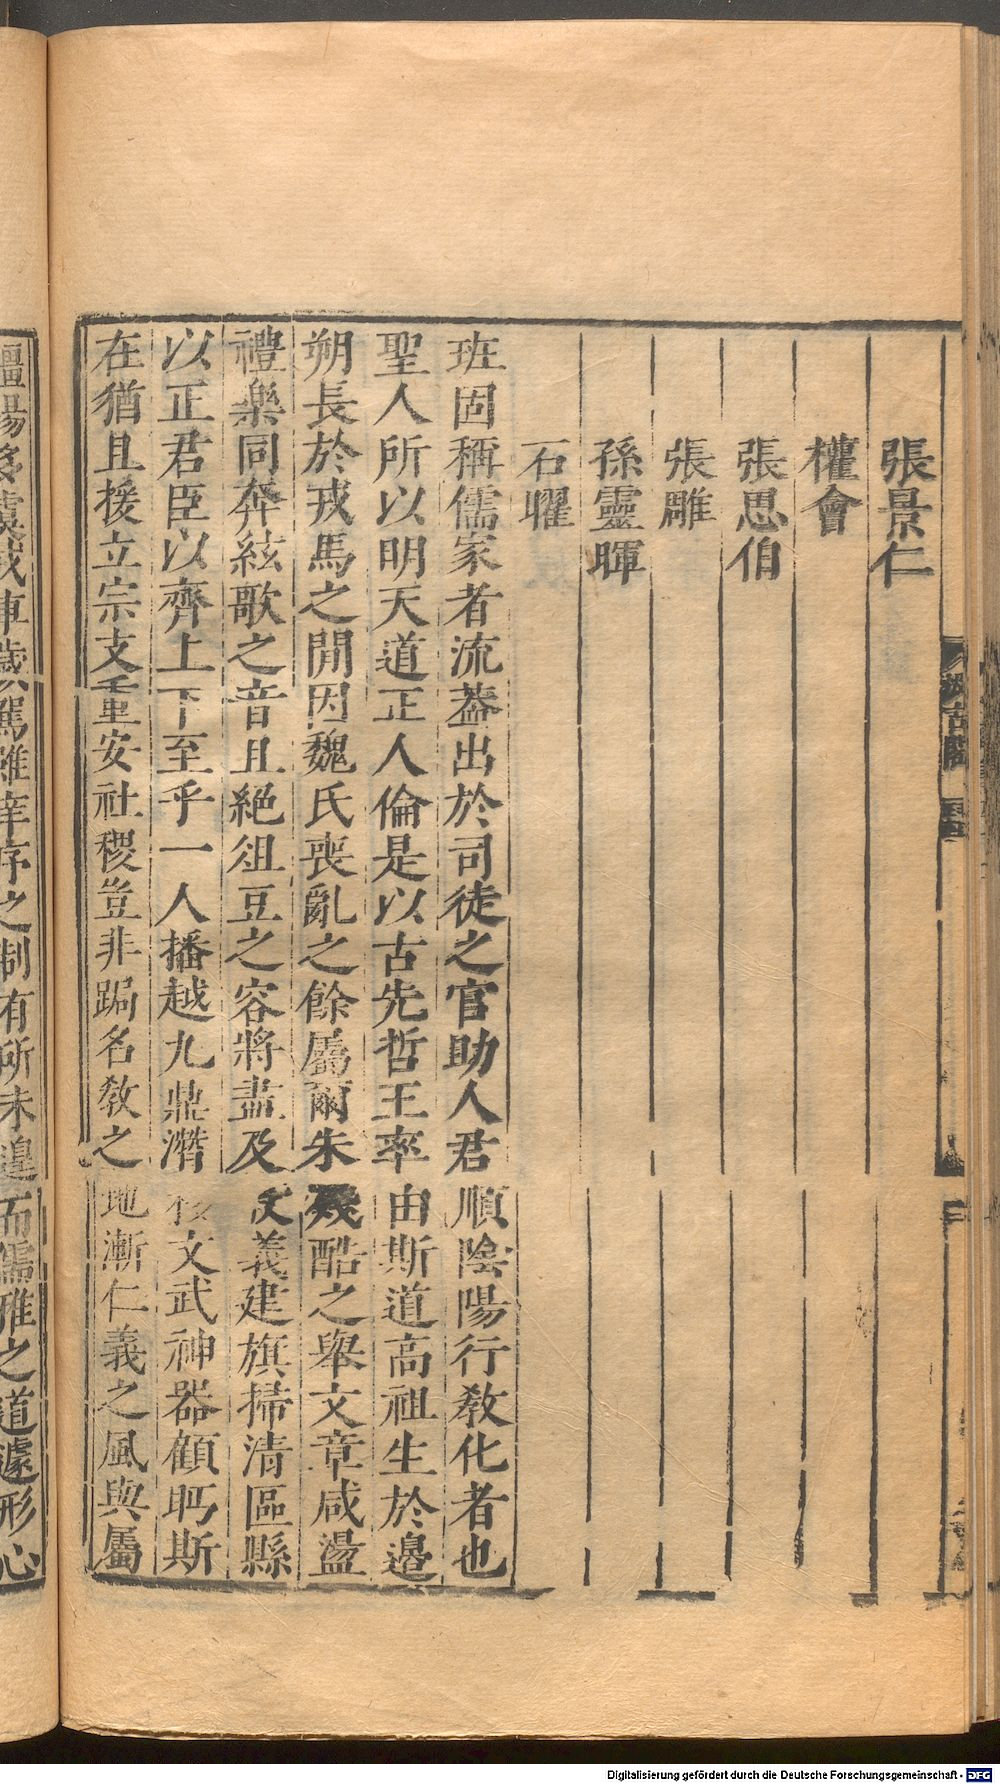 張景仁
權會
張思伯
張雕
孫靈暉
石曜
班固稱儒家者流葢出於司徒之官助人君順陰陽行敎化者也
聖人所以明天道正人倫是以古先哲王率由斯道高祖生於邊
朔長於戎馬之閒因魏氏喪亂之餘屬爾朱殘酷之舉文章咸盪
禮樂同奔絃歌之音且絕俎豆之容將盡及義建旗掃清區縣
以正君臣以齊上下至乎一人播越九鼎潛文武神器顧眄斯
在猶且援立宗支重安社稷豈非跼名敎之地漸仁義之風與屬
疆埸多虞戎車歲駕雖庠序之制有所未遑而儒雅之道遽形心
Digitalisierung gefördert durch die Deutsche Forschungsgemeinschaft - DFG